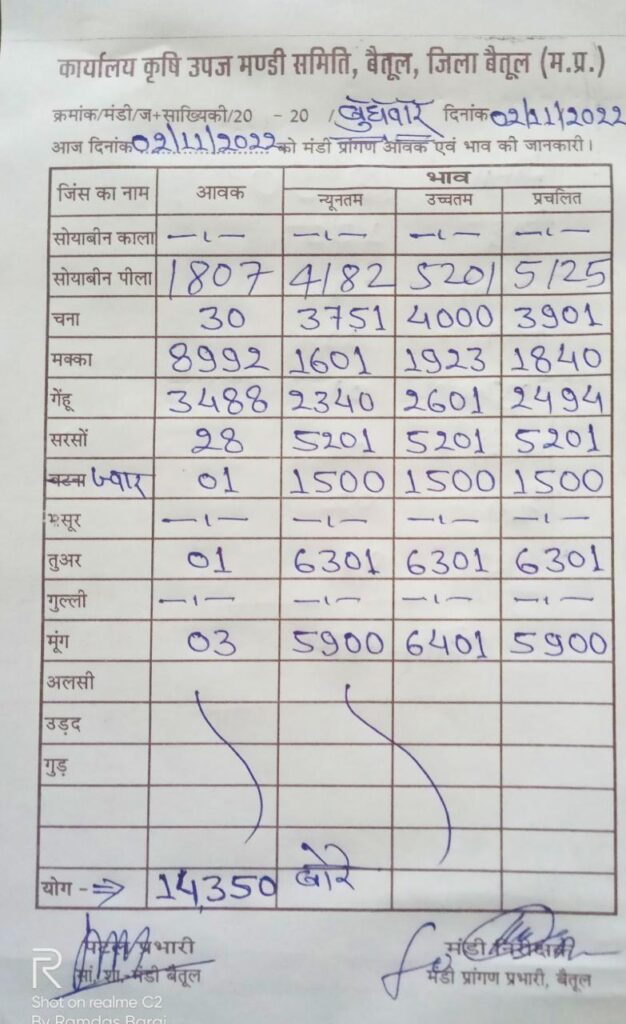 कार्यालय कृषि उपज मण्डी समिति, बैतूल, जिला बैतूल (म.प्र.)
क्रमांक/मंडी/ज+साख्यिकी/20 - 20 / बुधवार दिनांक 02/11/2022
आज दिनांक 02/11/2022 को मंडी प्रांगण आवक एवं भाव की जानकारी।
जिंस का नाम आवक भाव
न्यूनतम उच्चतम प्रचलित
सोयाबीन काला —ı— —ı— —ı— —ı—
सोयाबीन पीला 1807 4182 5201 5125
चना 30 3751 4000 3901
मक्का 8992 1601 1923 1840
गेंहू 3488 2340 2601 2494
सरसों 28 5201 5201 5201
बटना ज्वार 01 1500 1500 1500
मसूर —ı— —ı— —ı— —ı—
तुअर 01 6301 6301 6301
गुल्ली —ı— —ı— —ı— —ı—
मूंग 03 5900 6401 5900
अलसी
उड़द
गुड़
योग -⇒ 14,350 बोरे
प्रभारी मंडी
सां. शा. मंडी बैतूल मंडी प्रांगण प्रभारी, बैतूल
R
Shot on realme C2
By Ramdas Barai